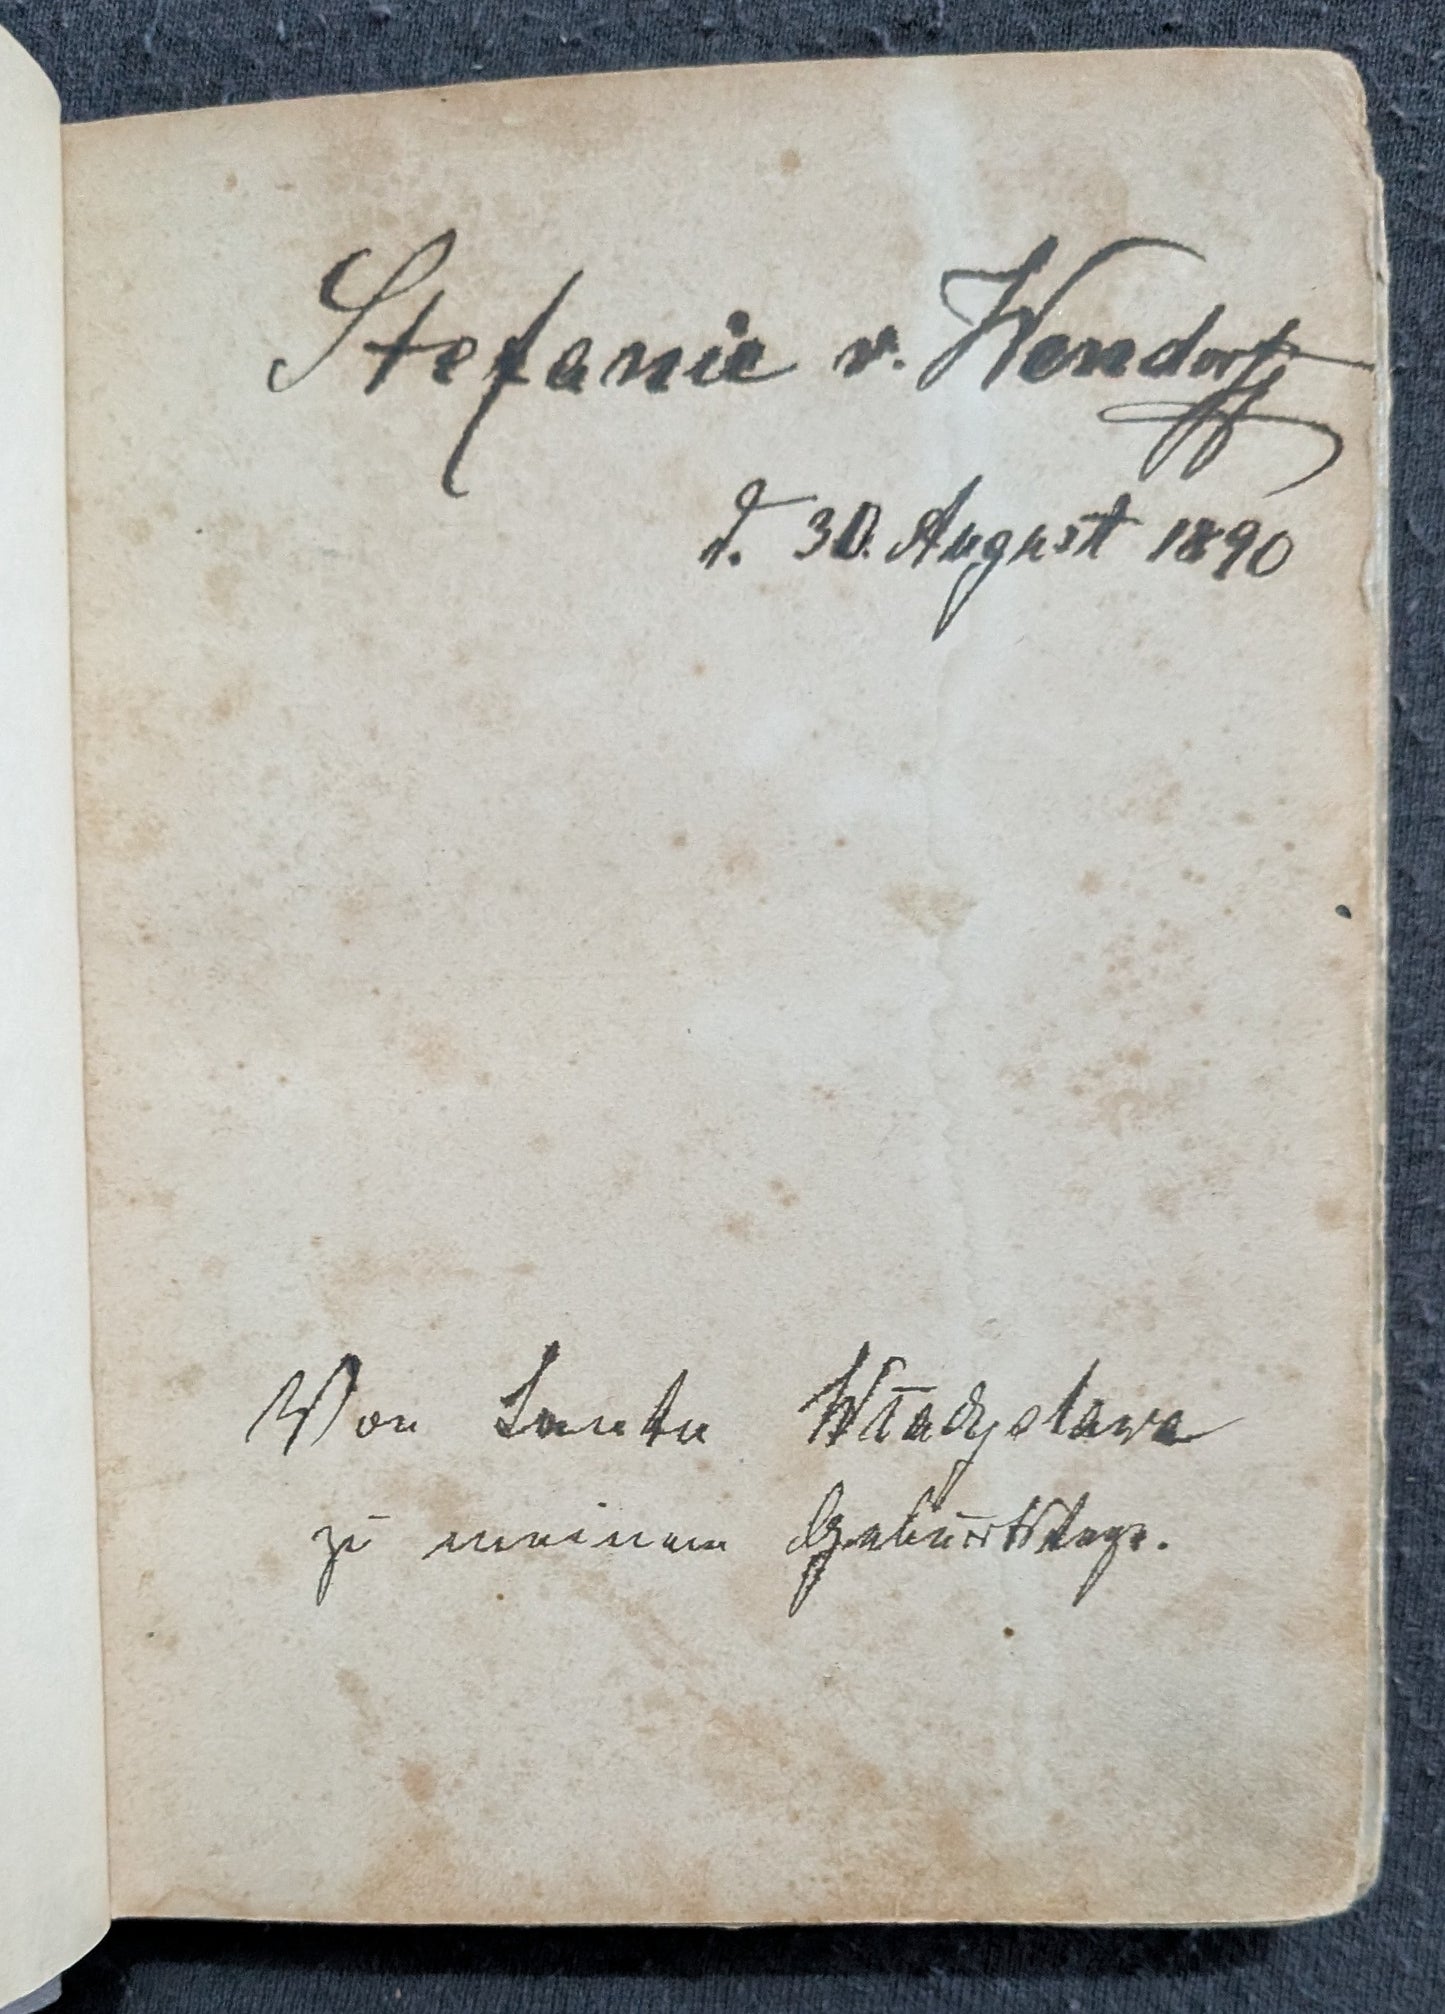 Stefanie v. Wendorff
d. 30. August 1890
Von Tante Władysława
zu meinem Geburtstage.